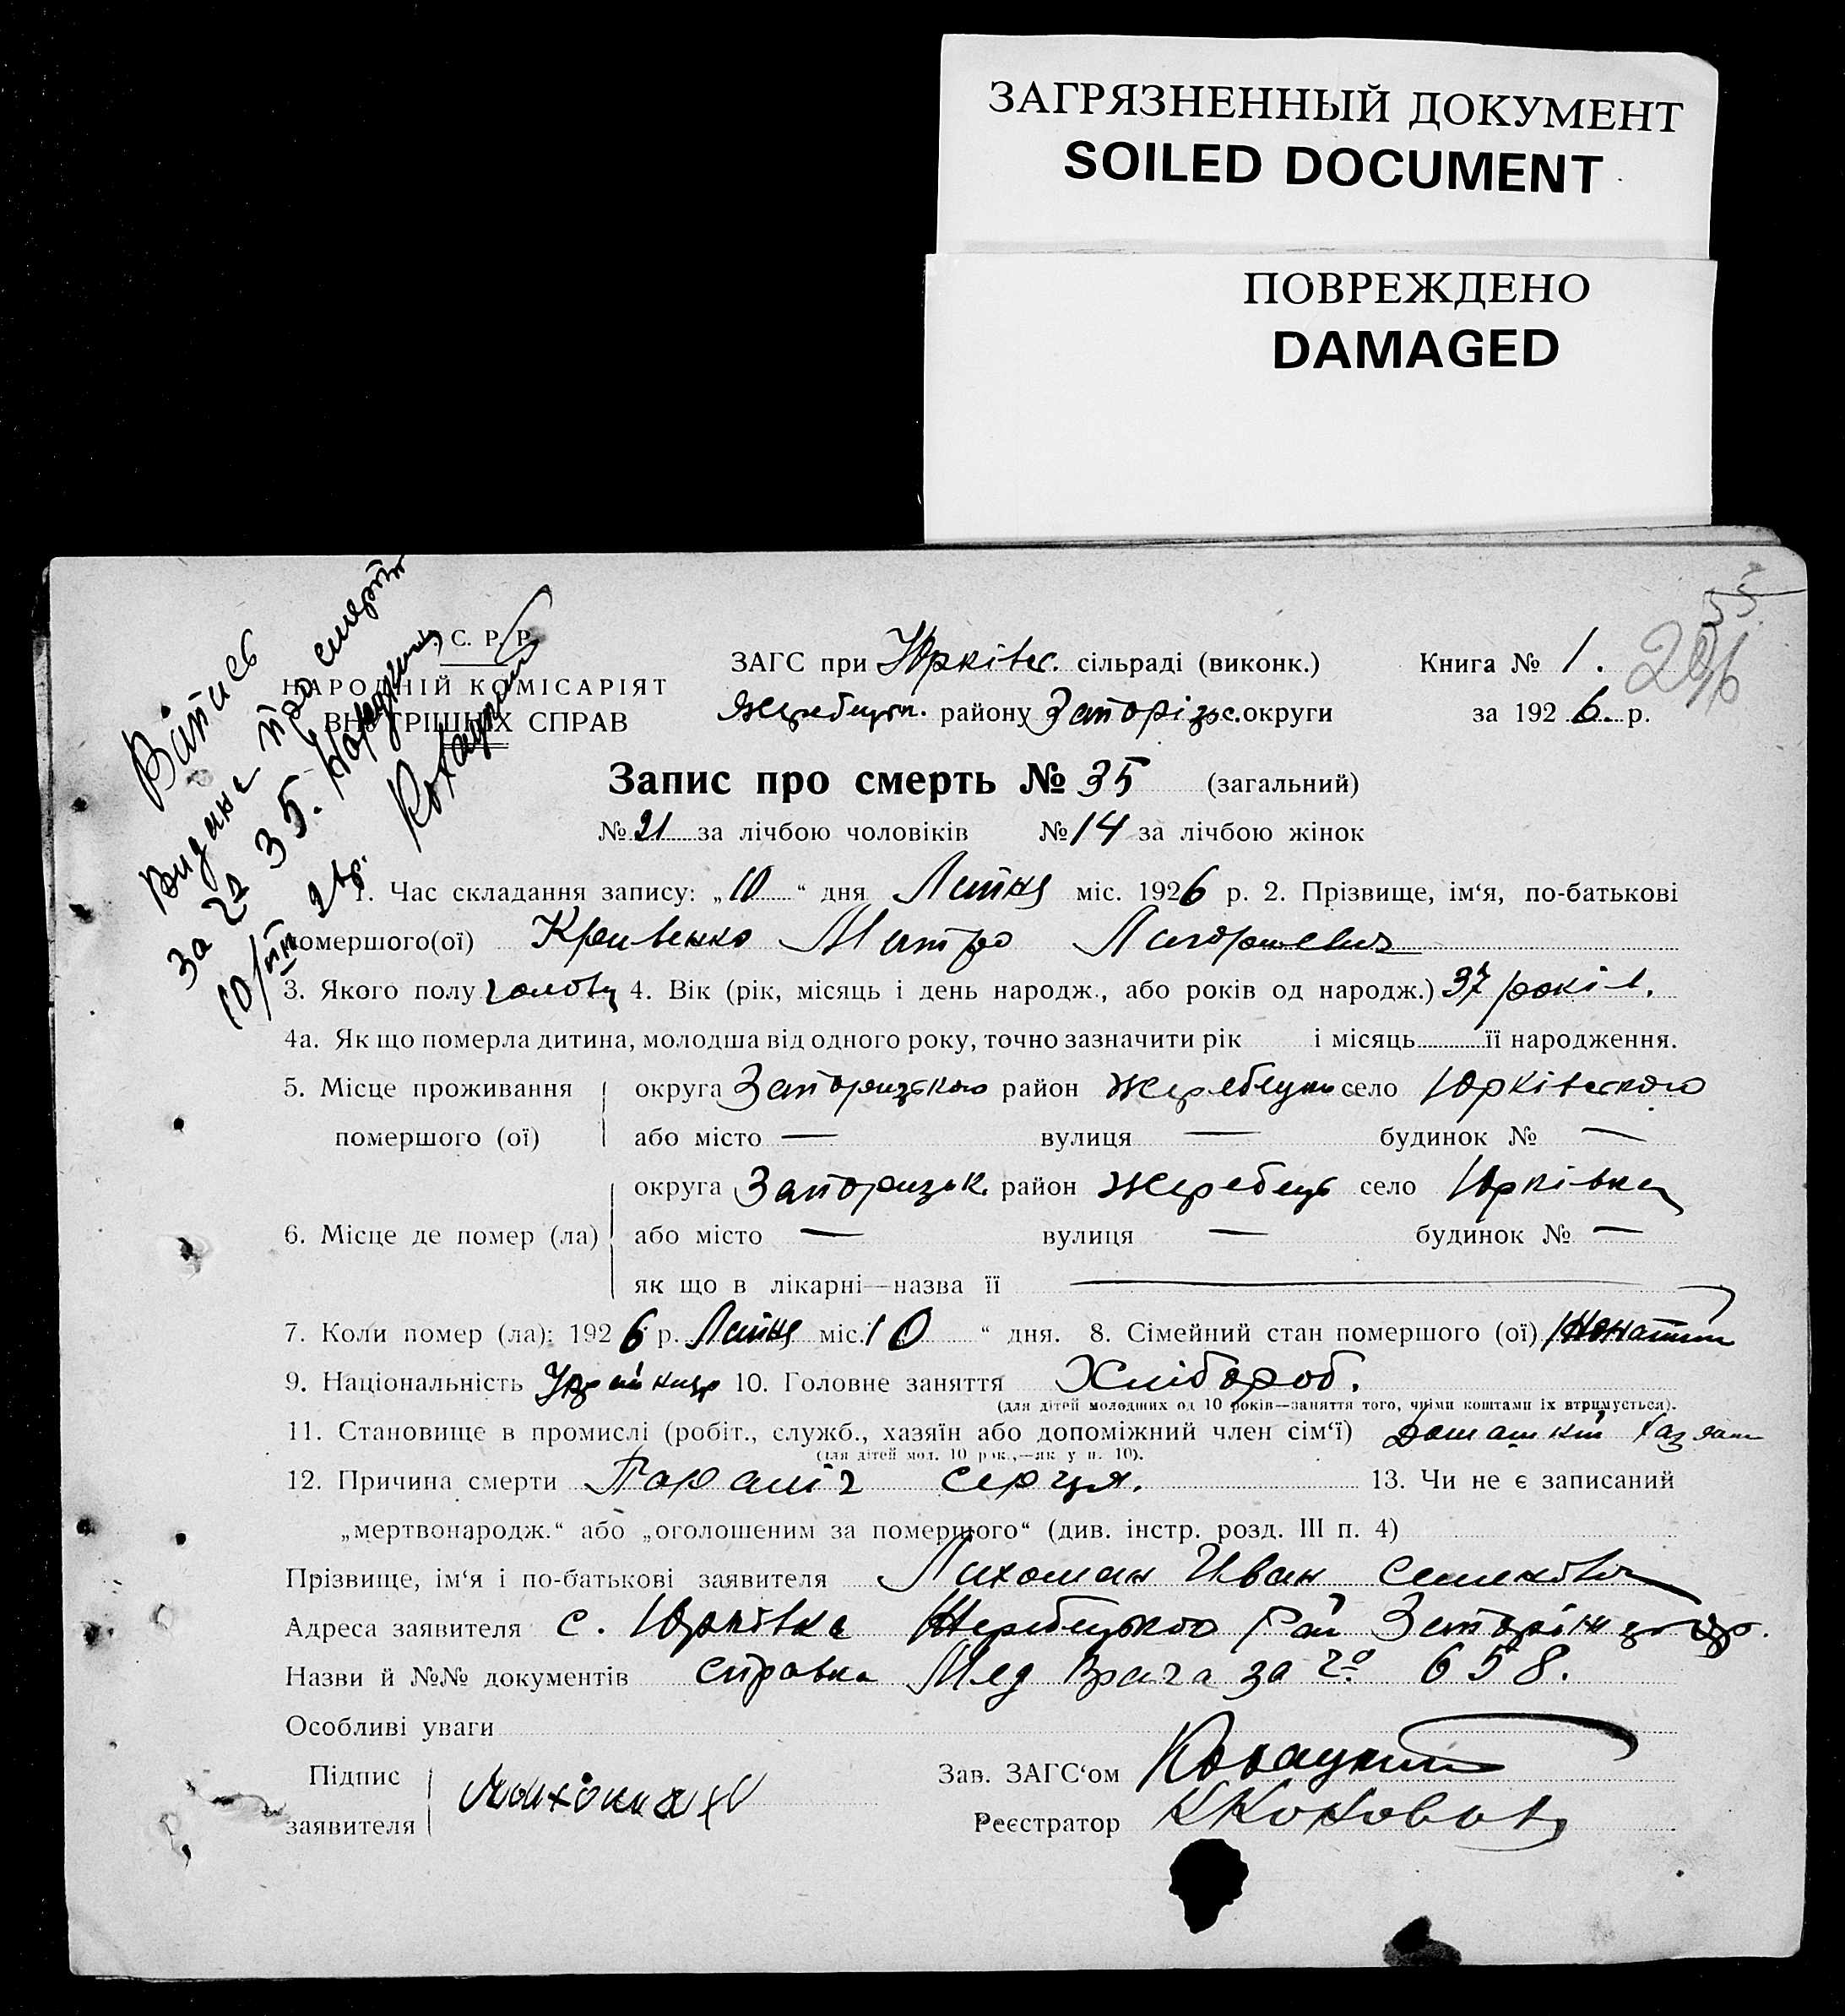 ЗАГРЯЗНЕННЫЙ ДОКУМЕНТ
SOILED DOCUMENT
ПОВРЕЖДЕНО
DAMAGED
55
Витяг
Видане про смерть
за № 35.
С. Р. Р.
НАРОДНІЙ КОМІСАРІЯТ
ВНУТРІШНІХ СПРАВ
ЗАГС при Юрківск. сільраді (виконк.) Книга № 1.
Жеребецьк. району Запорізьк. округи за 1926 р.
Запис про смерть № 35 (загальний)
№ 21 за лічбою чоловіків № 14 за лічбою жінок
1. Час складання запису: „10“ дня Липня міс. 1926 р. 2. Прізвище, ім‘я, по-батькові
помершого(ої) Кривенко Митро
3. Якого полу чолов. 4. Вік (рік, місяць і день народж., або років од народж.) 37 років.
4а. Як що померла дитина, молодша від одного року, точно зазначити рік і місяць її народження.
5. Місце проживання округа Запоризького район Жеребецьк село Юрківського
помершого (ої) або місто — вулиця — будинок № —
округа Запоризьк. район Жеребець село Юрківка
6. Місце де помер (ла) або місто — вулиця — будинок № —
як що в лікарні—назва її —
7. Коли помер (ла): 1926 р. Липня міс. 10 “ дня. 8. Сімейний стан помершого (ої) Жонатий
9. Національність Українець 10. Головне заняття Хлібороб.
(для дітей молодших од 10 років—заняття того, чиїми коштами їх втримується).
11. Становище в промислі (робіт., служб., хазяїн або допоміжний член сім‘ї) хазяин
(для дітей мол. 10 рок.,—як у п. 10).
12. Причина смерти Параліч серця. 13. Чи не є записаний
„мертвонародж.“ або „оголошеним за помершого“ (див. інстр. розд. III п. 4)
Прізвище, ім‘я і по-батькові заявителя Лихоман Иван Семенович
Адреса заявителя с. Юрківка Жеребецького Рай Запоріж. окр.
Назви й №№ документів справка Мед Врача за № 658.
Особливі уваги
Підпис
заявителя
Зав. ЗАГС‘ом
Реєстратор